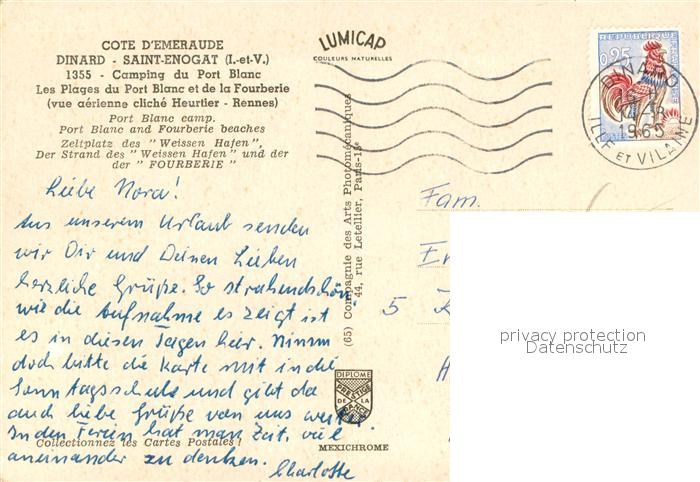 COTE D'EMERAUDE
DINARD - SAINT-ENOGAT (I.-et-V.)
1355 - Camping du Port Blanc
Les Plages du Port Blanc et de la Fourberie
(vue aérienne cliché Heurtier - Rennes)
Port Blanc camp.
Port Blanc and Fourberie beaches
Zeltplatz des "Weissen Hafen",
Der Strand des "Weissen Hafen" und der
der "FOURBERIE"
Liebe Nora!
Aus unserem Urlaub senden
wir Dir und Deinen Lieben
herzliche Grüße. So strahlendschön
wie die Aufnahme es zeigt ist
es in diesen Tagen hier. Nimm
doch bitte die Karte mit in die
Sonntagsschule und gibt da
auch liebe Grüße von uns weiter.
In den Ferien hat man Zeit, viel
aneinander zu denken.
Charlotte
Collectionnez les Cartes Postales !
LUMICAP
COULEURS NATURELLES
(65) Compagnie des Arts Photomécaniques
44, rue Letellier, Paris-15e
DIPLOME
PRESTIGE
DE LA
FRANCE
MEXICHROME
REPUBLIQUE
0,25
DINARD
1965
ILLE ET VILAINE
Fam.
5
privacy protection
Datenschutz